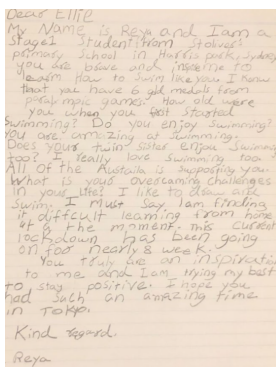 Dear Ellie
My Name is Reya and I am a
Stage1 Student from St olivers
primary School in Harris park, Sydney
you are brave and inspire me to
learn How to Swim like you. I know
that you have 6 gld medals from
paralympic games. How old were
you when you first Started
Swimming? Do you enjoy Swimming?
you are amazing at swimming.
Does your twin sister enjoy Swimming
too? I really love swimming too.
All of the Austaila is Supporting you.
What is your overcoming challenges
in your life? I like to dance and
Swim. I must Say, I am finding
it difficult learning from home
at the moment. This current
lockdown has been going
on for nearly 8 week.
You truly are an inspiration
to me and I am trying my best
to stay positive. I hope you
had such an amazing time
in Tokyo.
Kind regard.
Reya